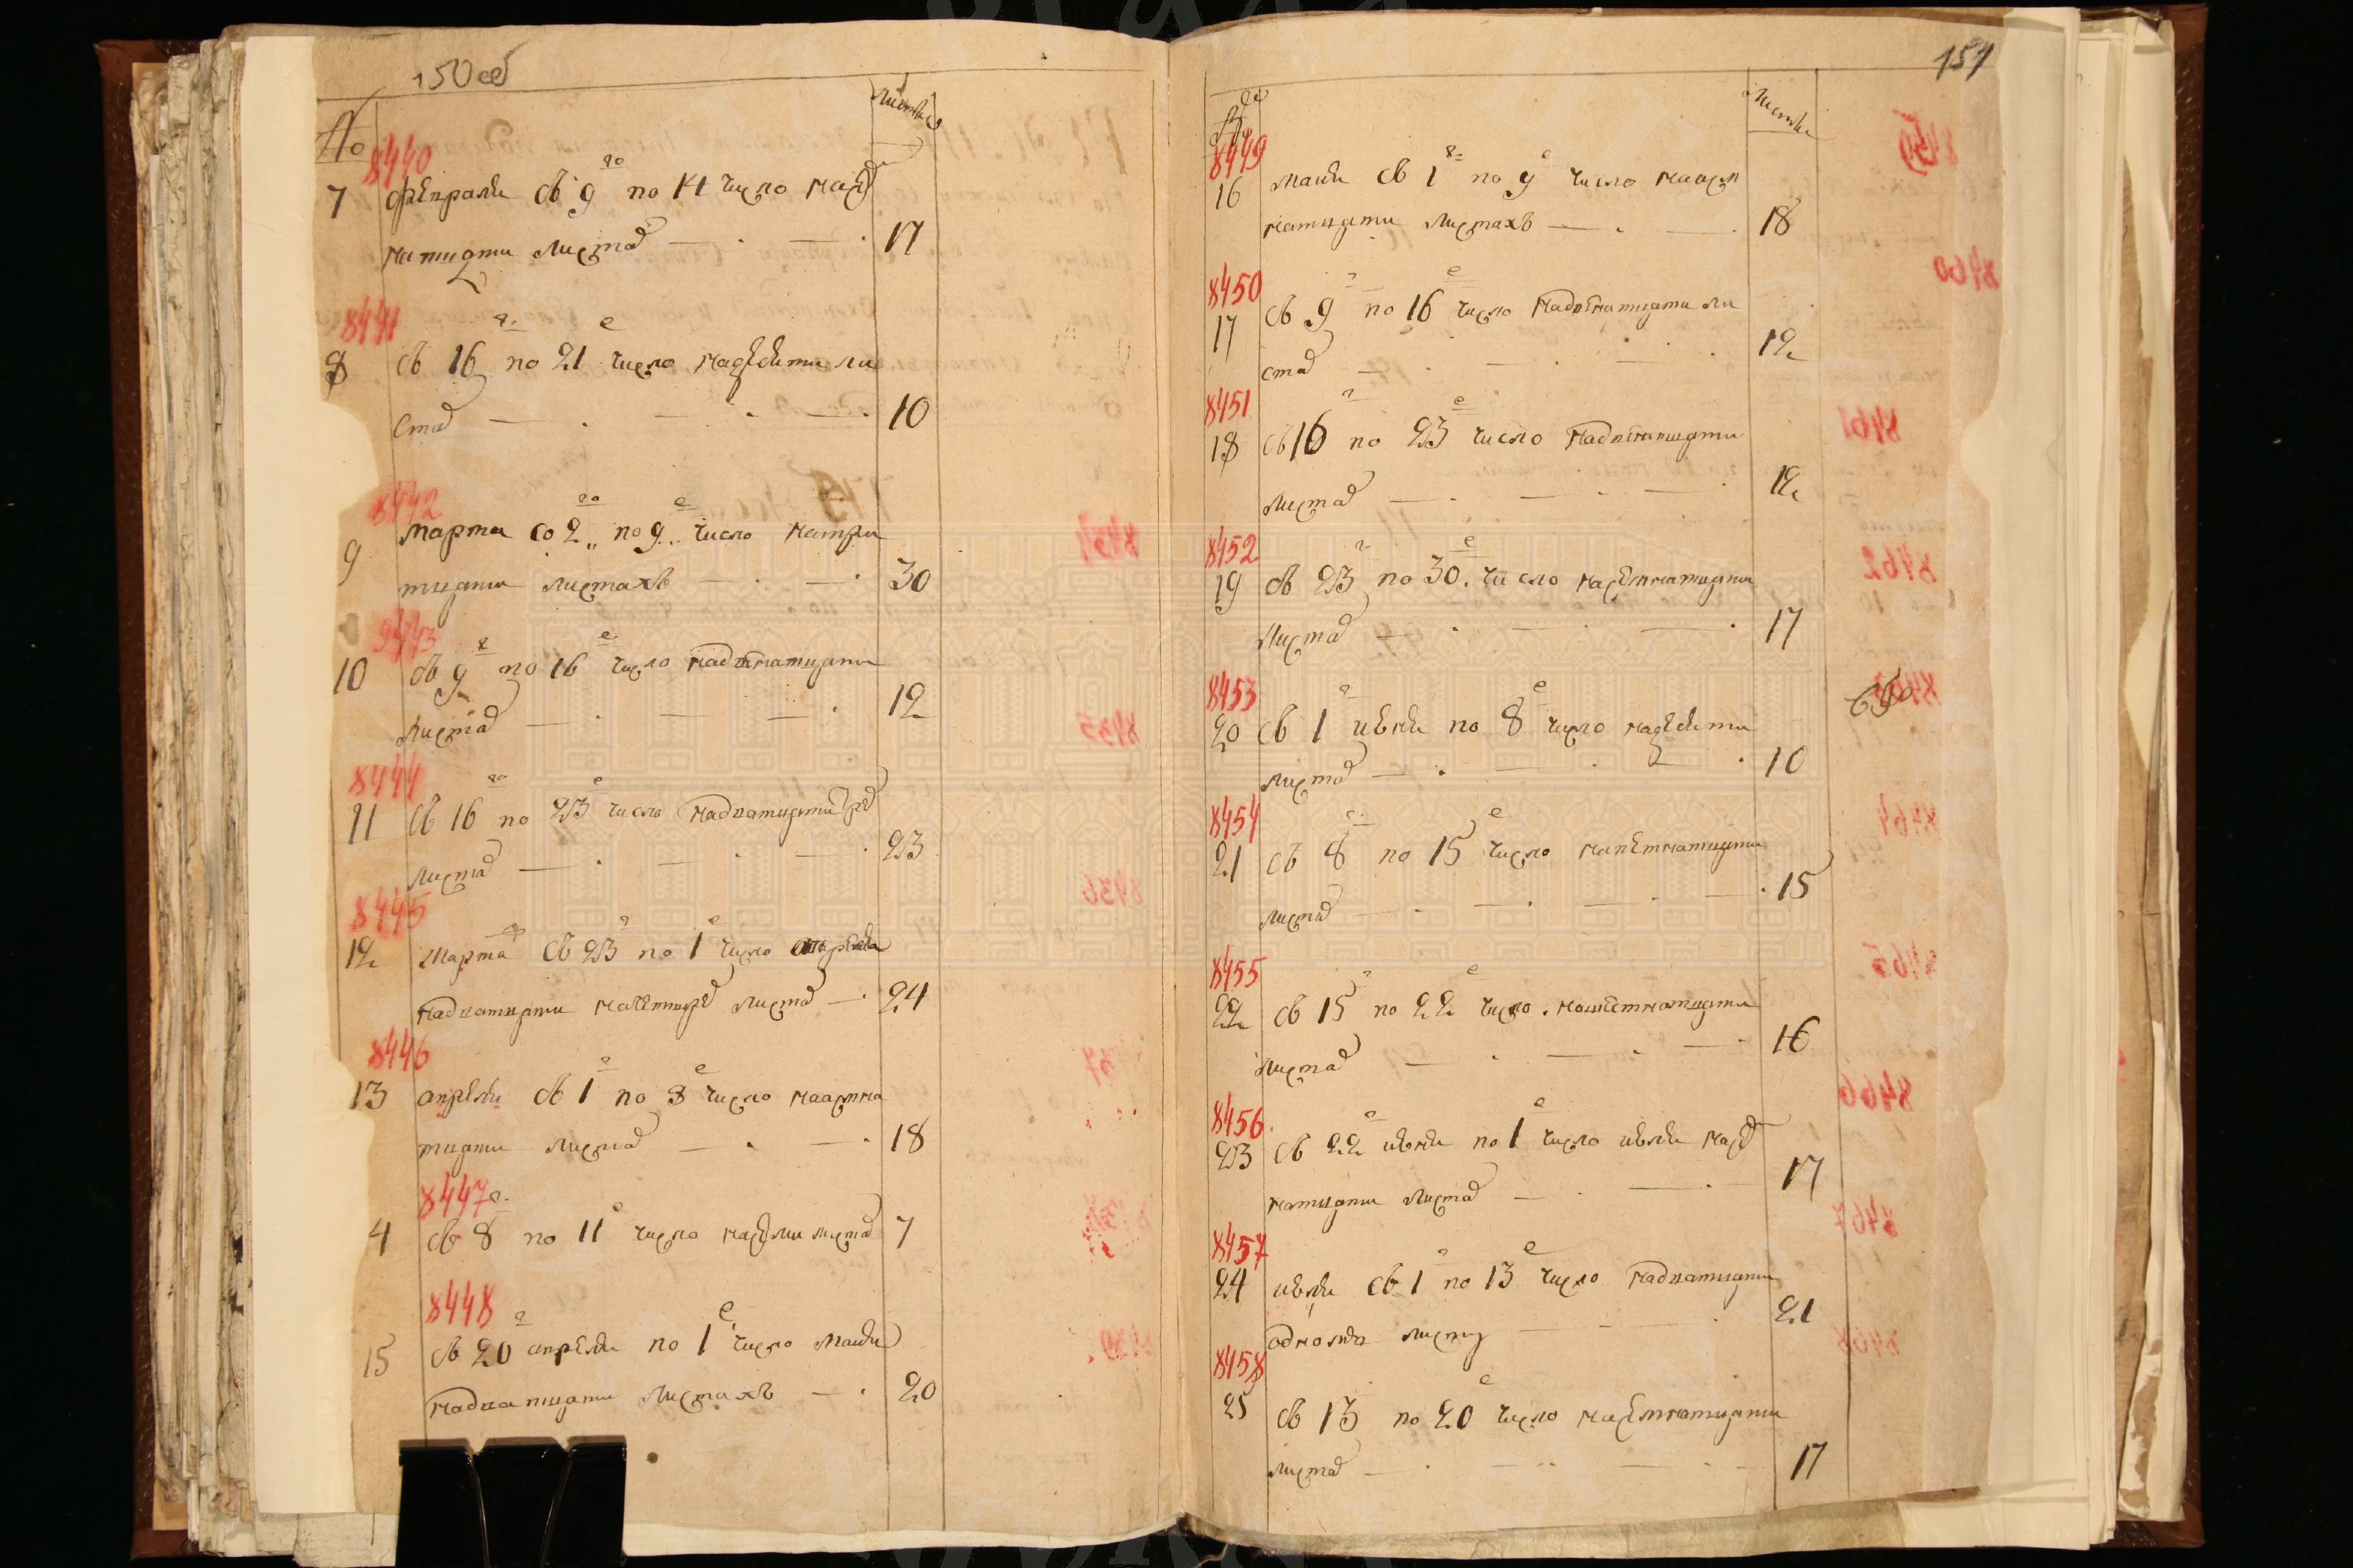 150 об
№
листы
8440
7 февраля съ 9го по 14 число на сем
натцати листах 17
8441
8 съ 16го по 21е число на десяти ли
стах 10
8442
9 марта со 2го по 9е число на три
тцати листахъ 30
8443
10 съ 9г по 16е число на двенатцати
листах 12
8444
11 съ 16го по 23е число на дватцати трех
листах 23
8445
12 марта съ 23г по 1е число апреля
на дватцати на четырех листах 24
8446
13 апреля съ 1г по 8е число на осмна
тцати листах 18
8447
4 съ 8г по 11е число на семи листах 7
8448
15 съ 20г апреля по 1е число маия
на дватцати листахъ 20
151
№
листы
8449
16 маия съ 1г по 9е число на осм
натцати листахъ 18
8450
17 съ 9г по 16е число на двенатцати ли
стах 12
8451
18 съ 16г по 23е число на двенатцати
листах 12
8452
19 съ 23г по 30е число на семнатцати
листах 17
8453
20 съ 1г июня по 8е число на десяти
листах 10
8454
21 съ 8г по 15е число на петнатцати
листах 15
8455
22 съ 15г по 22е число на шестнатцати
листах 16
8456
23 съ 22г июня по 1е число июля на сем
натцати листах 17
8457
24 июля съ 1г по 13е число на дватцати
одномъ листу 21
8458
25 съ 13 по 20е число на семнатцати
листах 17